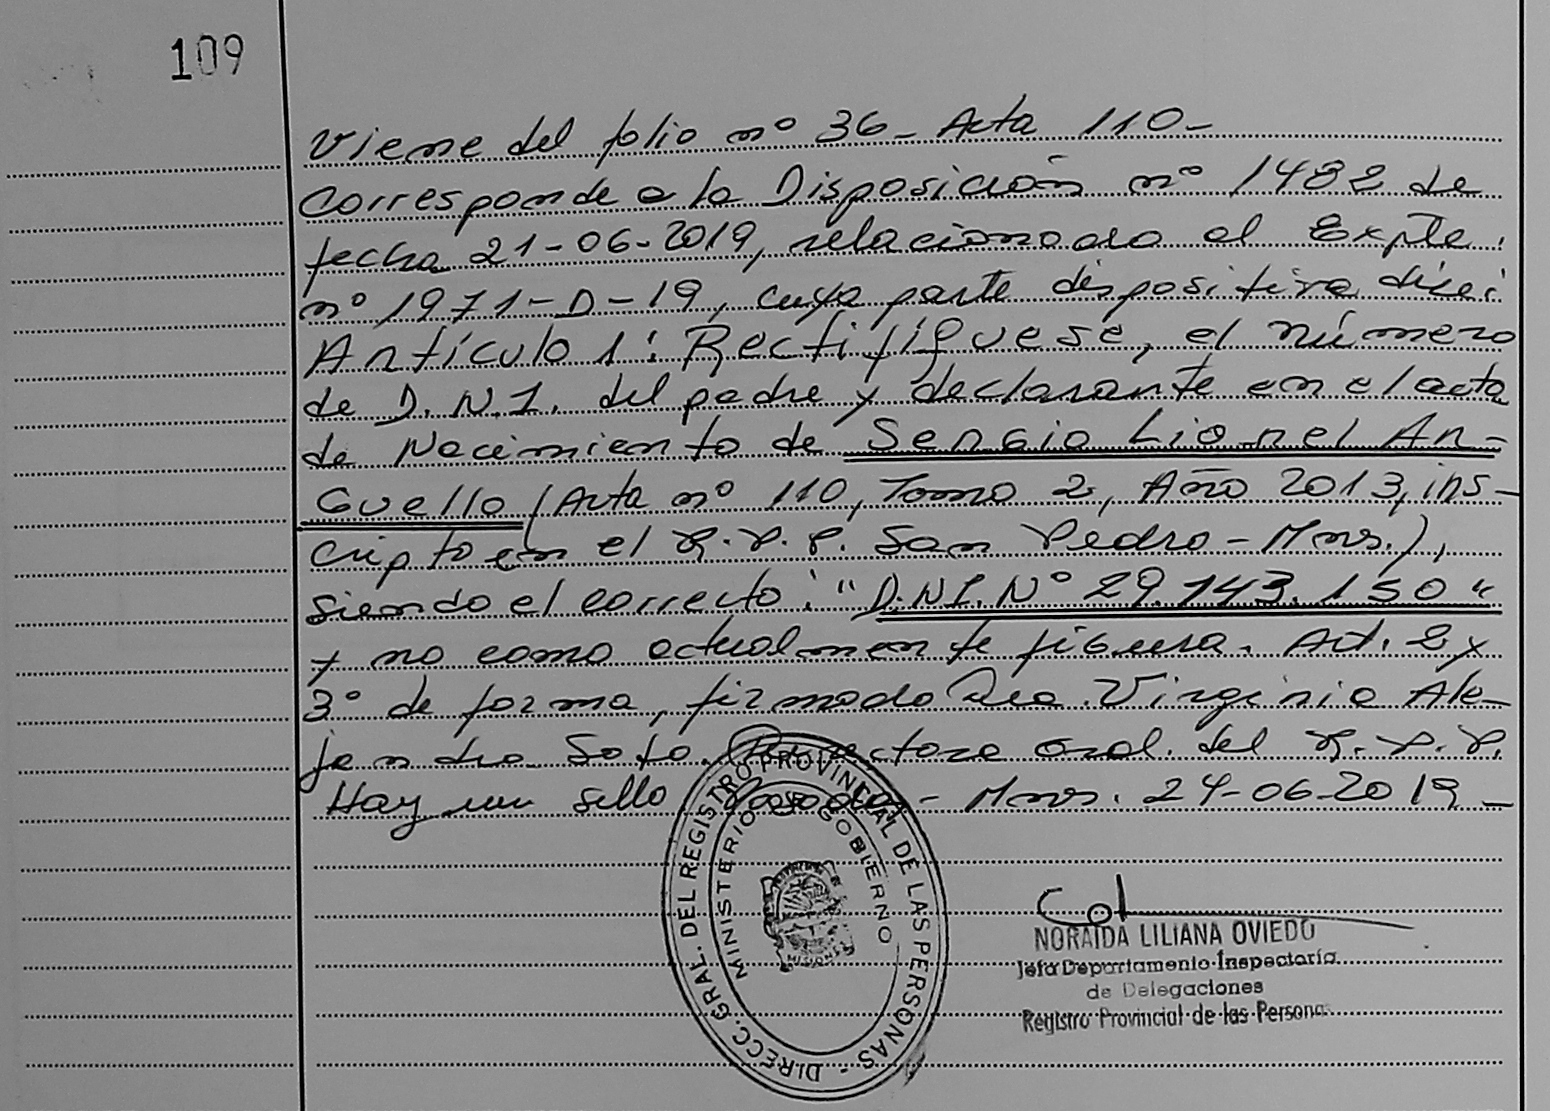 109
Viene del folio nº 36 - Acta 110 -
Corresponde a la Disposición nº 1482 de
fecha 21-06-2019, relacionado al Expte.
nº 1971-D-19, cuya parte dispositiva dice:
Artículo 1: Rectifíquese, el número
de D.N.I. del padre y declarante en el acta
de Nacimiento de Sergio Lionel An-
guello (Acta nº 110, Tomo 2, Año 2013, ins-
cripto en el R.P.P. San Pedro - Mnes.),
siendo el correcto: "D.N.I. Nº 29.143.150"
y no como actualmente figura. Art. 2 y
3º de forma, firmado Dra. Virginia Ale-
jandra Soto. Directora Gral. del R.P.P.
Hay un sello - Mnes. 24-06-2019 -
DIRECC. GRAL. DEL REGISTRO PROVINCIAL DE LAS PERSONAS -
MINISTERIO DE GOBIERNO
MISIONES
NORAIDA LILIANA OVIEDO
Jefa Departamento Inspectoría
de Delegaciones
Registro Provincial de las Personas